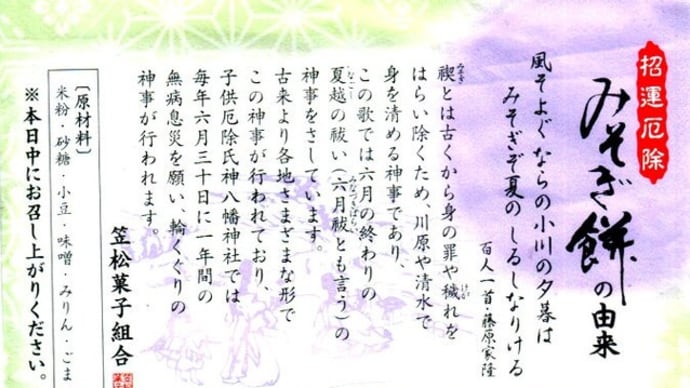 招運厄除
みそぎ餅の由来
風そよぐならの小川の夕暮は
みそぎぞ夏のしるしなりける
百人一首・藤原家隆
禊とは古くから身の罪や穢れを
はらい除くため、川原や清水で
身を清める神事であり、
この歌では六月の終わりの
夏越の祓い(六月祓とも言う)の
神事をさしています。
古来より各地さまざまな形で
この神事が行われており、
子供厄除氏神八幡神社では
毎年六月三十日に一年間の
無病息災を願い、輪くぐりの
神事が行われます。
笠松菓子組合
〔原材料〕
米粉・砂糖・小豆・味噌・みりん・ごま
※本日中にお召し上がりください。